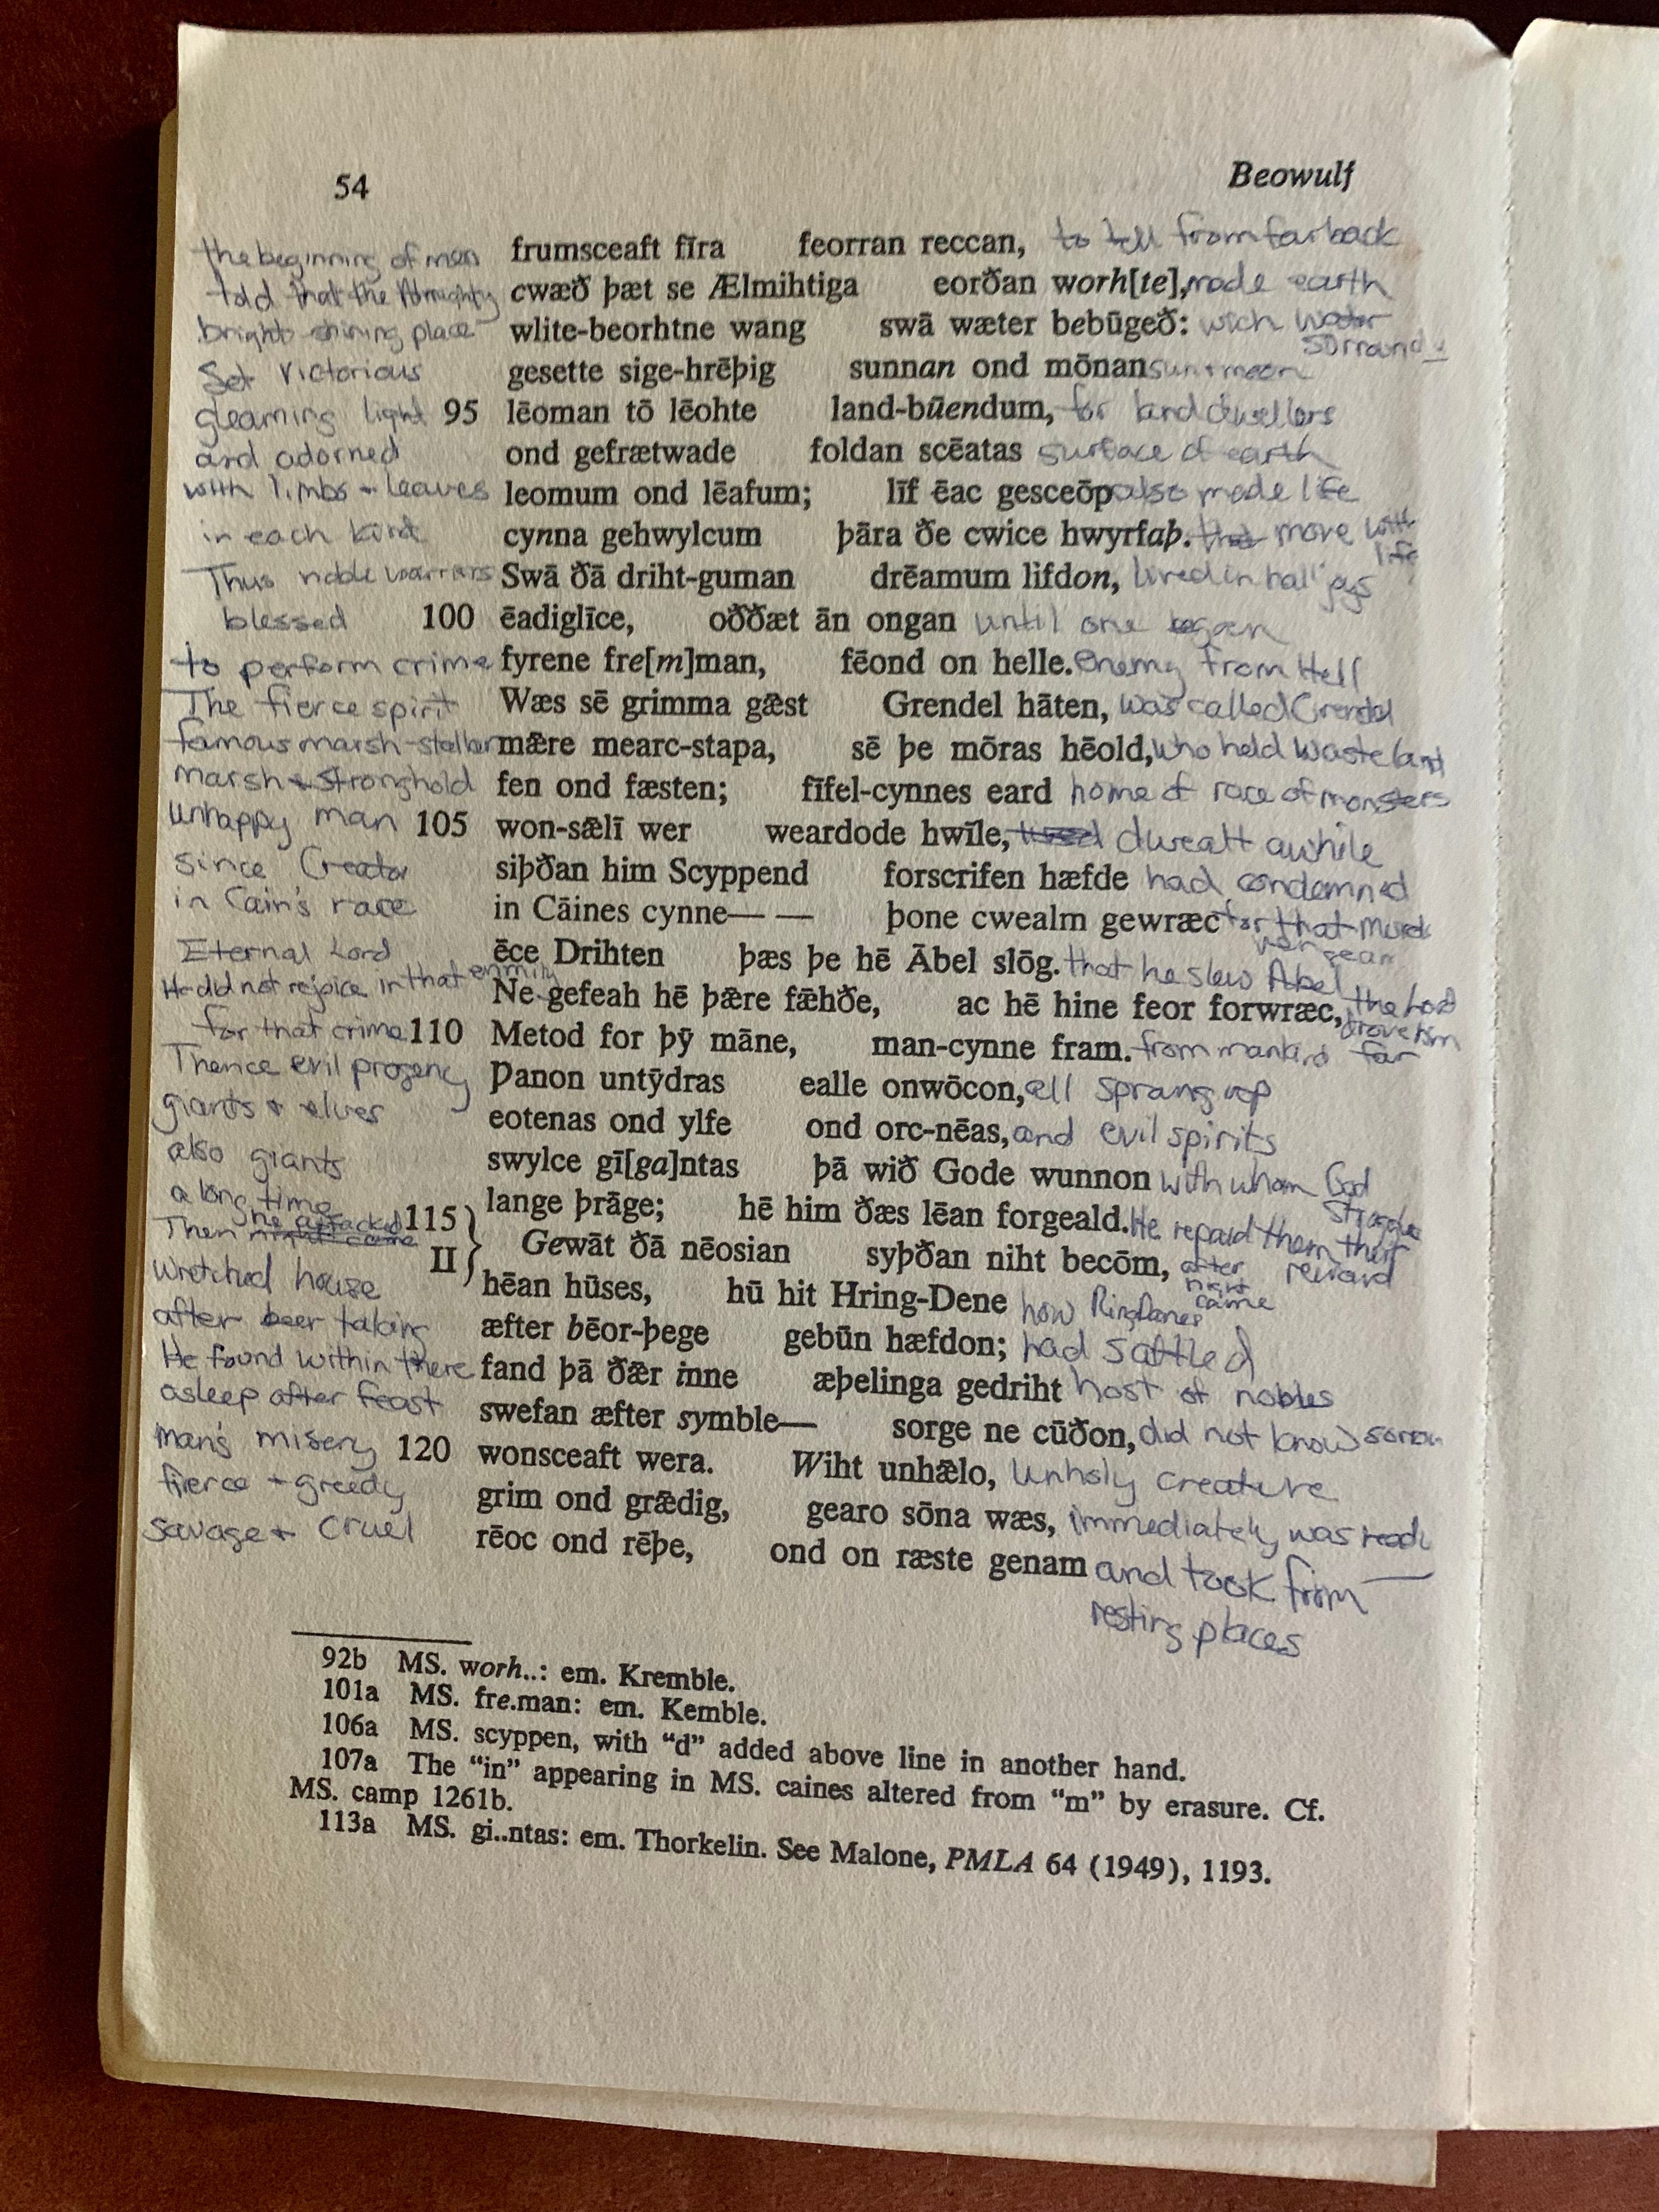 54 Beowulf
the beginning of men frumsceaft fīra feorran reccan, to tell from far back
told that the Almighty cwæð þæt se Ælmihtiga eorðan worh[te], made earth
bright shining place wlite-beorhtne wang swā wæter bebūgeð: wich water
surrounds
Set victorious gesette sige-hrēþig sunnan ond mōnan sun + moon
gleaming light 95 lēoman tō lēohte land-būendum, for land dwellers
and adorned ond gefrætwade foldan scēatas surface of earth
with limbs + leaves leomum ond lēafum; līf ēac gesceōp also made life
in each kind cynna gehwylcum þāra ðe cwice hwyrfaþ. that move with
life
Thus noble warriors Swā ðā driht-guman drēamum lifdon, lived in hall joys
blessed 100 ēadiglīce, oððæt ān ongan until one began
to perform crime fyrene fre[m]man, fēond on helle. enemy from Hell
The fierce spirit Wæs sē grimma gǣst Grendel hāten, was called Grendel
famous marsh-stalker mǣre mearc-stapa, sē þe mōras hēold, who held wasteland
marsh + stronghold fen ond fæsten; fīfel-cynnes eard home of race of monsters
unhappy man 105 won-sǣlī wer weardode hwīle, dwealt awhile
since Creator siþðan him Scyppend forscrifen hæfde had condemned
in Cain's race in Cāines cynne— — þone cwealm gewræc for that murder
Eternal Lord ēce Drihten þæs þe hē Ābel slōg. that he slew Abel
He did not rejoice in that enmity Ne gefeah hē þǣre fǣhðe, ac hē hine feor forwræc, the Lord
drove him
for that crime 110 Metod for þȳ māne, man-cynne fram. from mankind far
Thence evil progeny Þanon untȳdras ealle onwōcon, all sprang up
giants + elves eotenas ond ylfe ond orc-nēas, and evil spirits
also giants swylce gī[ga]ntas þā wið Gode wunnon with whom God
a long time lange þrāge; hē him ðæs lēan forgeald. He repaid them their
reward
Then he attacked 115
II Gewāt ðā nēosian syþðan niht becōm, after
night
came
wretched house hēan hūses, hū hit Hring-Dene how RingDanes
after beer taking æfter bēor-þege gebūn hæfdon; had sattled
He found within there fand þā ðǣr inne æþelinga gedriht host of nobles
asleep after feast swefan æfter symble— sorge ne cūðon, did not know sorrow
man's misery 120 wonsceaft wera. Wiht unhǣlo, Unholy creature
fierce + greedy grim ond grǣdig, gearo sōna wæs, immediately was ready
savage + cruel rēoc ond rēþe, ond on ræste genam and took from
resting places
92b MS. worh..: em. Kremble.
101a MS. fre.man: em. Kemble.
106a MS. scyppen, with “d” added above line in another hand.
107a The “in” appearing in MS. caines altered from “m” by erasure. Cf.
MS. camp 1261b.
113a MS. gi..ntas: em. Thorkelin. See Malone, PMLA 64 (1949), 1193.